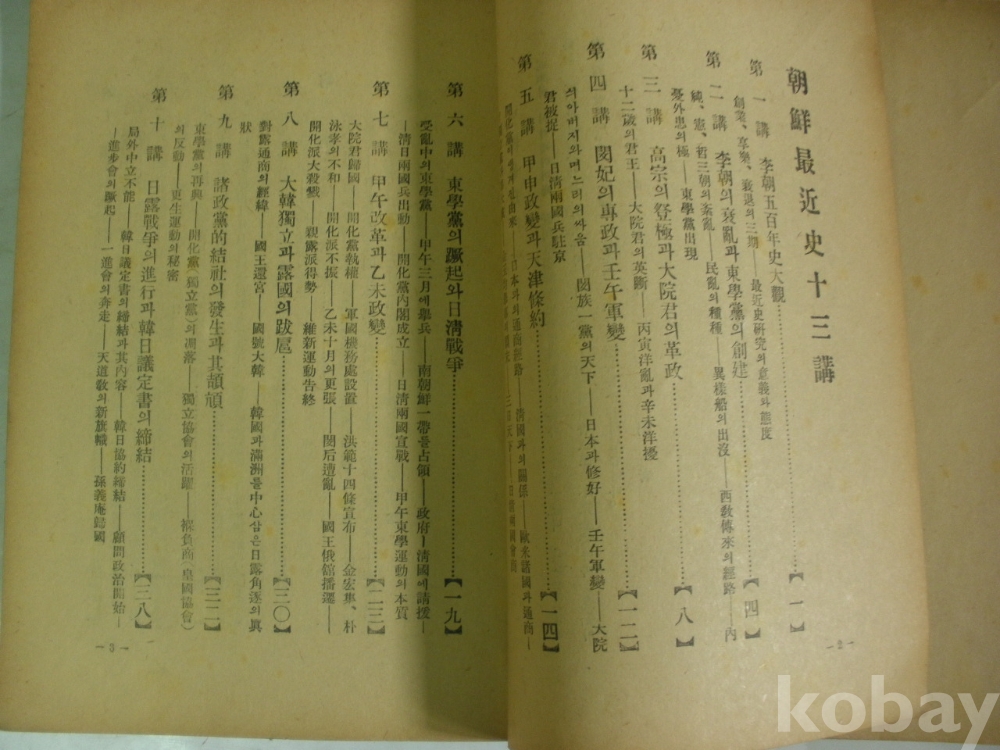 朝鮮最近史十三講
第一講 李朝五百年史大觀【一】
創業、享樂、衰退의三期——最近史硏究의意義와態度
第二講 李朝의衰亂과東學黨의創建【四】
純、憲、哲三朝의紊亂——民亂의種種——異樣船의出沒——西敎傳來의經路——內
憂外患의極——東學黨出現
第三講 高宗의登極과大院君의革政【八】
十二歲의君王——大院君의英斷——丙寅洋亂과辛未洋擾
第四講 閔妃의專政과壬午軍變【一二】
싀아버지와며느리의싸음——閔族一黨의天下——日本과修好——壬午軍變——大院
君被捉——日淸兩國兵駐京
第五講 甲申政變과天津條約【一四】
日本과의通商經路——淸國과의關係——歐米諸國과通商—
—2—
第六講 東學黨의蹶起와日淸戰爭【一九】
受亂中의東學黨——甲午三月에擧兵——南朝鮮一帶를占領——政府—淸國에請援—
—淸日兩國兵出動——開化黨內閣成立——日淸兩國宣戰——甲午東學運動의本質
第七講 甲午改革과乙未政變【二三】
大院君歸國——開化黨執權——軍國機務處設置——洪範十四條宣布——金宏集、朴
泳孝의不和——開化派不振——乙未十月의更張——閔后遭亂——國王俄館播遷——
開化派大殺戮——親露派得勢——維新運動告終
第八講 大韓獨立과露國의跋扈【三〇】
對露通商의經緯——國王還宮——國號大韓——韓國과滿洲를中心삼은日露角逐의眞
狀
第九講 諸政黨的結社의發生과其頡頏【三二】
東學黨의再興——開化黨(獨立黨)의凋落——獨立協會의活躍——褓負商(皇國協會)
의反動——更生運動의秘密
第十講 日露戰爭의進行과韓日議定書의締結【三八】
局外中立不能——韓日議定書의締結과其內容——韓日協約締結——顧問政治開始—
—進步會의蹶起——一進會의奔走——天道敎의新旗幟——孫義庵歸國
—3—
kobay